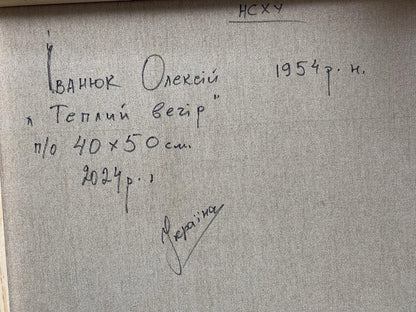 НСХУ
Іванюк Олексій 1954 р. н.
„Теплий вечір"
п/о 40×50 см.
2024 р.,
Україна